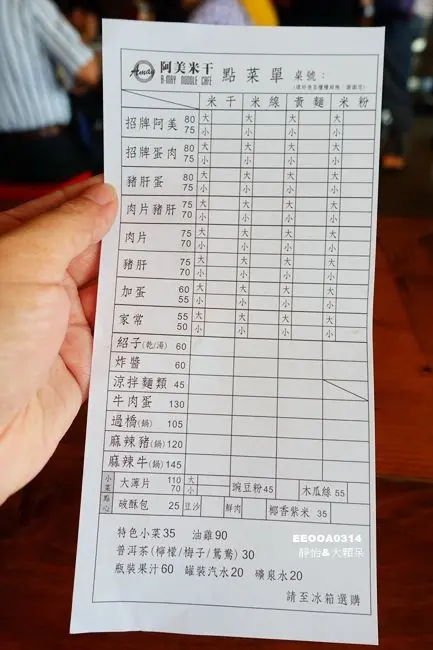 Amay 阿美米干 點菜單 桌號：
A-MAY NOODLE CAFE
米干 米線 黃麵 米粉
招牌阿美 80 大 大 大 大
75 小 小 小 小
招牌蛋肉 80 大 大 大 大
75 小 小 小 小
豬肝蛋 80 大 大 大 大
75 小 小 小 小
肉片豬肝 75 大 大 大 大
70 小 小 小 小
肉片 75 大 大 大 大
70 小 小 小 小
豬肝 75 大 大 大 大
70 小 小 小 小
加蛋 60 大 大 大 大
55 小 小 小 小
家常 55 大 大 大 大
50 小 小 小 小
紹子(乾/湯) 60
炸醬 60
涼拌麵類 45
牛肉蛋 130
過橋(鍋) 105
麻辣豬(鍋) 120
麻辣牛(鍋) 145
小菜 大薄片 110 大 豌豆粉 45 木瓜絲 55
70 小
點心 破酥包 25 豆沙 鮮肉 椰香紫米 35
特色小菜35 油雞90
普洱茶(檸檬/梅子/鴛鴦)30
瓶裝果汁60 罐裝汽水20 礦泉水20
請至冰箱選購
EEOOA0314
靜怡&大顆呆